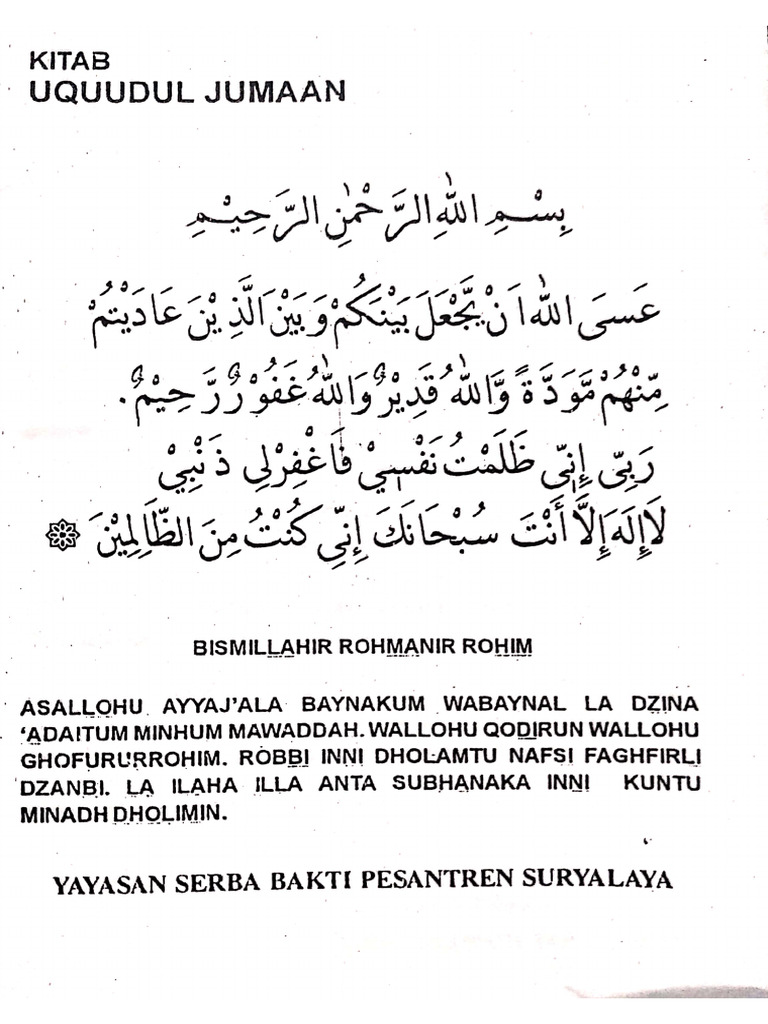 KITAB
UQUUDUL JUMAAN
بِسْمِ اللهِ الرَّحْمٰنِ الرَّحِيْمِ
عَسَى اللهُ اَنْ يَّجْعَلَ بَيْنَكُمْ وَبَيْنَ الَّذِيْنَ عَادَيْتُمْ
مِّنْهُمْ مَّوَدَّةً وَّاللهُ قَدِيْرٌ وَاللهُ غَفُوْرٌ رَّحِيْمٌ.
رَبِّى إِنِّى ظَلَمْتُ نَفْسِيْ فَاغْفِرْلِى ذَنْبِيْ
لَاإِلَهَ إِلَّا أَنْتَ سُبْحَانَكَ إِنِّى كُنْتُ مِنَ الظَّالِمِيْنَ
BISMILLAHIR ROHMANIR ROHIM
ASALLOHU AYYAJ'ALA BAYNAKUM WABAYNAL LA DZINA
'ADAITUM MINHUM MAWADDAH. WALLOHU QODIRUN WALLOHU
GHOFURURROHIM. ROBBI INNI DHOLAMTU NAFSI FAGHFIRLI
DZANBI. LA ILAHA ILLA ANTA SUBHANAKA INNI KUNTU
MINADH DHOLIMIN.
YAYASAN SERBA BAKTI PESANTREN SURYALAYA